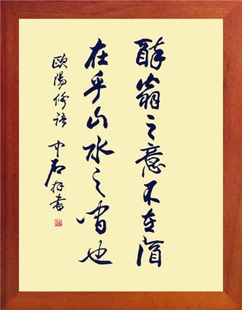 醉翁之意不在酒
在乎山水之間也
歐陽修語
中石書